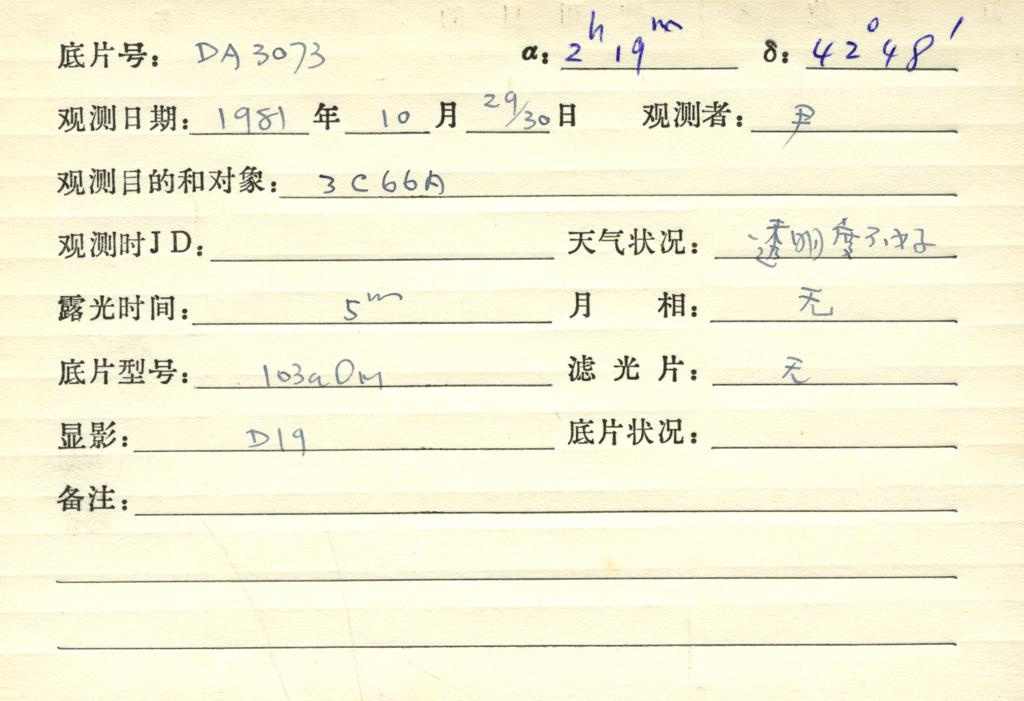 底片号： DA3073 α： 2ʰ19ᵐ δ： 42°48′
观测日期： 1981 年 10 月 29/30 日 观测者： 尹
观测目的和对象： 3C66A
观测时JD： 天气状况： 透明度不好
露光时间： 5ᵐ 月 相： 无
底片型号： 103aD 滤光片： 无
显影： D19 底片状况：
备注：